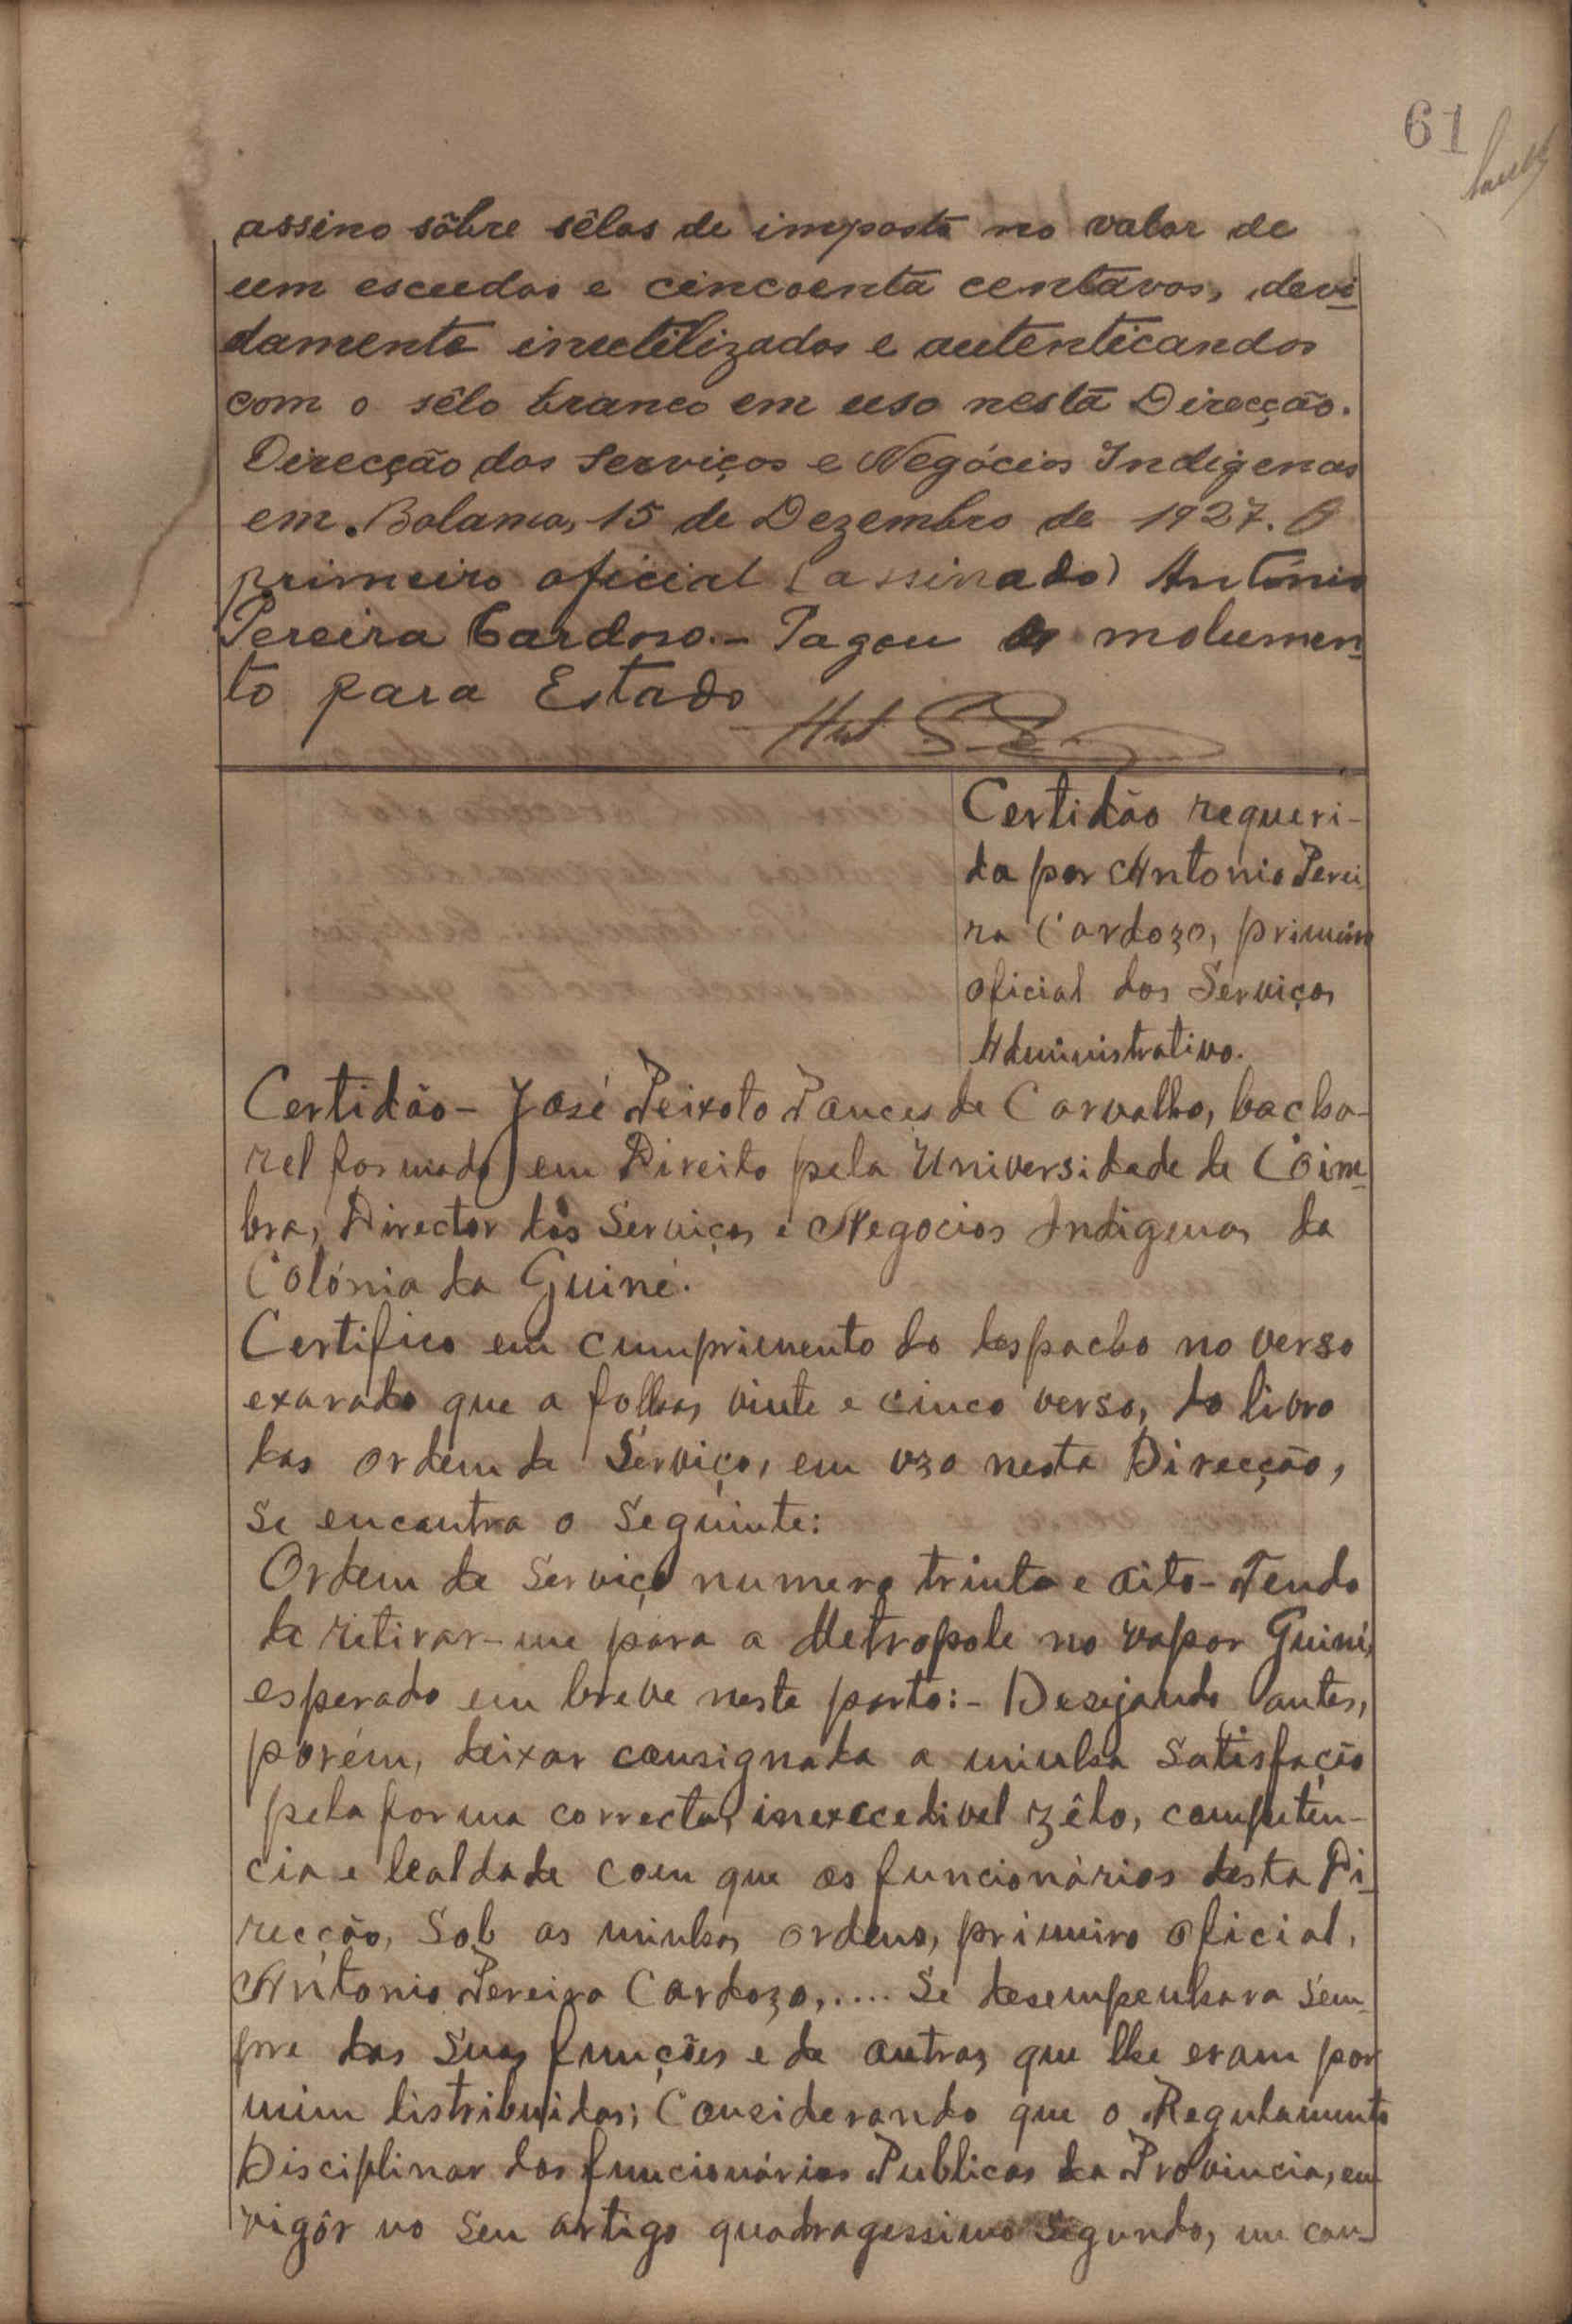 61
assino sôbre sêlos de imposto no valor de
um escudos e cincoenta centavos, devi
damente inutilizados e autenticandos
com o sêlo branco em uso nesta Direcção.
Direcção dos Serviços e Negócios Indigenas
em Bolama, 15 de Dezembro de 1927. O
primeiro oficial (assinado) António
Pereira Cardoso. - Pagou os molumen
to para Estado
Certidão requeri-
da por Antonio Perei
ra Cardozo, primeiro
oficial dos Serviços
Administrativo.
Certidão - José Peixoto de Carvalho, bacha-
rel formado em Direito pela Universidade de Coim
bra, Director dos Serviços e Negocios Indigenas da
Colónia da Guiné.
Certifico em cumprimento do despacho no verso
exarado que a folhas vinte e cinco verso, do livro
das ordem de Serviço, em uzo nesta Direcção,
se encontra o seguinte:
Ordem de Serviço numero trinta e oito - Tendo
de retirar-me para a Metropole no vapor Guiné,
esperado em breve neste porto: - Desejando antes,
porém, deixar consignada a minha satisfação
pela forma correcta, inexcedivel zêlo, competên-
cia e lealdade com que os funcionários desta Di
recção, sob as minhas ordens, primeiro oficial,
António Pereira Cardozo,..... se desempenhara sem
pre das suas funções e de outras que lhe eram por
mim distribuidas; Considerando que o Regulamento
Disciplinar dos funcionários Publicos da Provincia, em
vigôr no seu artigo quadragessimo segundo, me con-